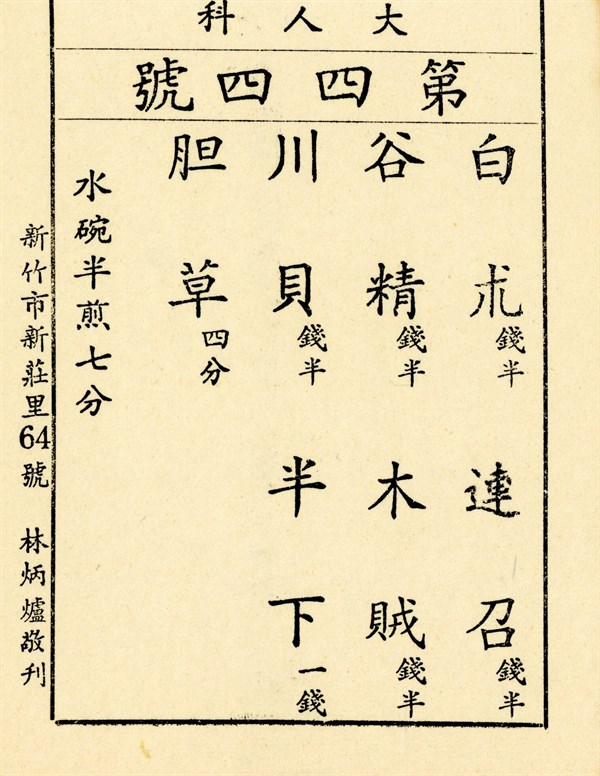 大人科
第四四號
白朮錢半 連召錢半
谷精錢半 木賊錢半
川貝錢半 半下一錢
胆草四分
水碗半煎七分
新竹市新莊里64號 林炳爐敬刊